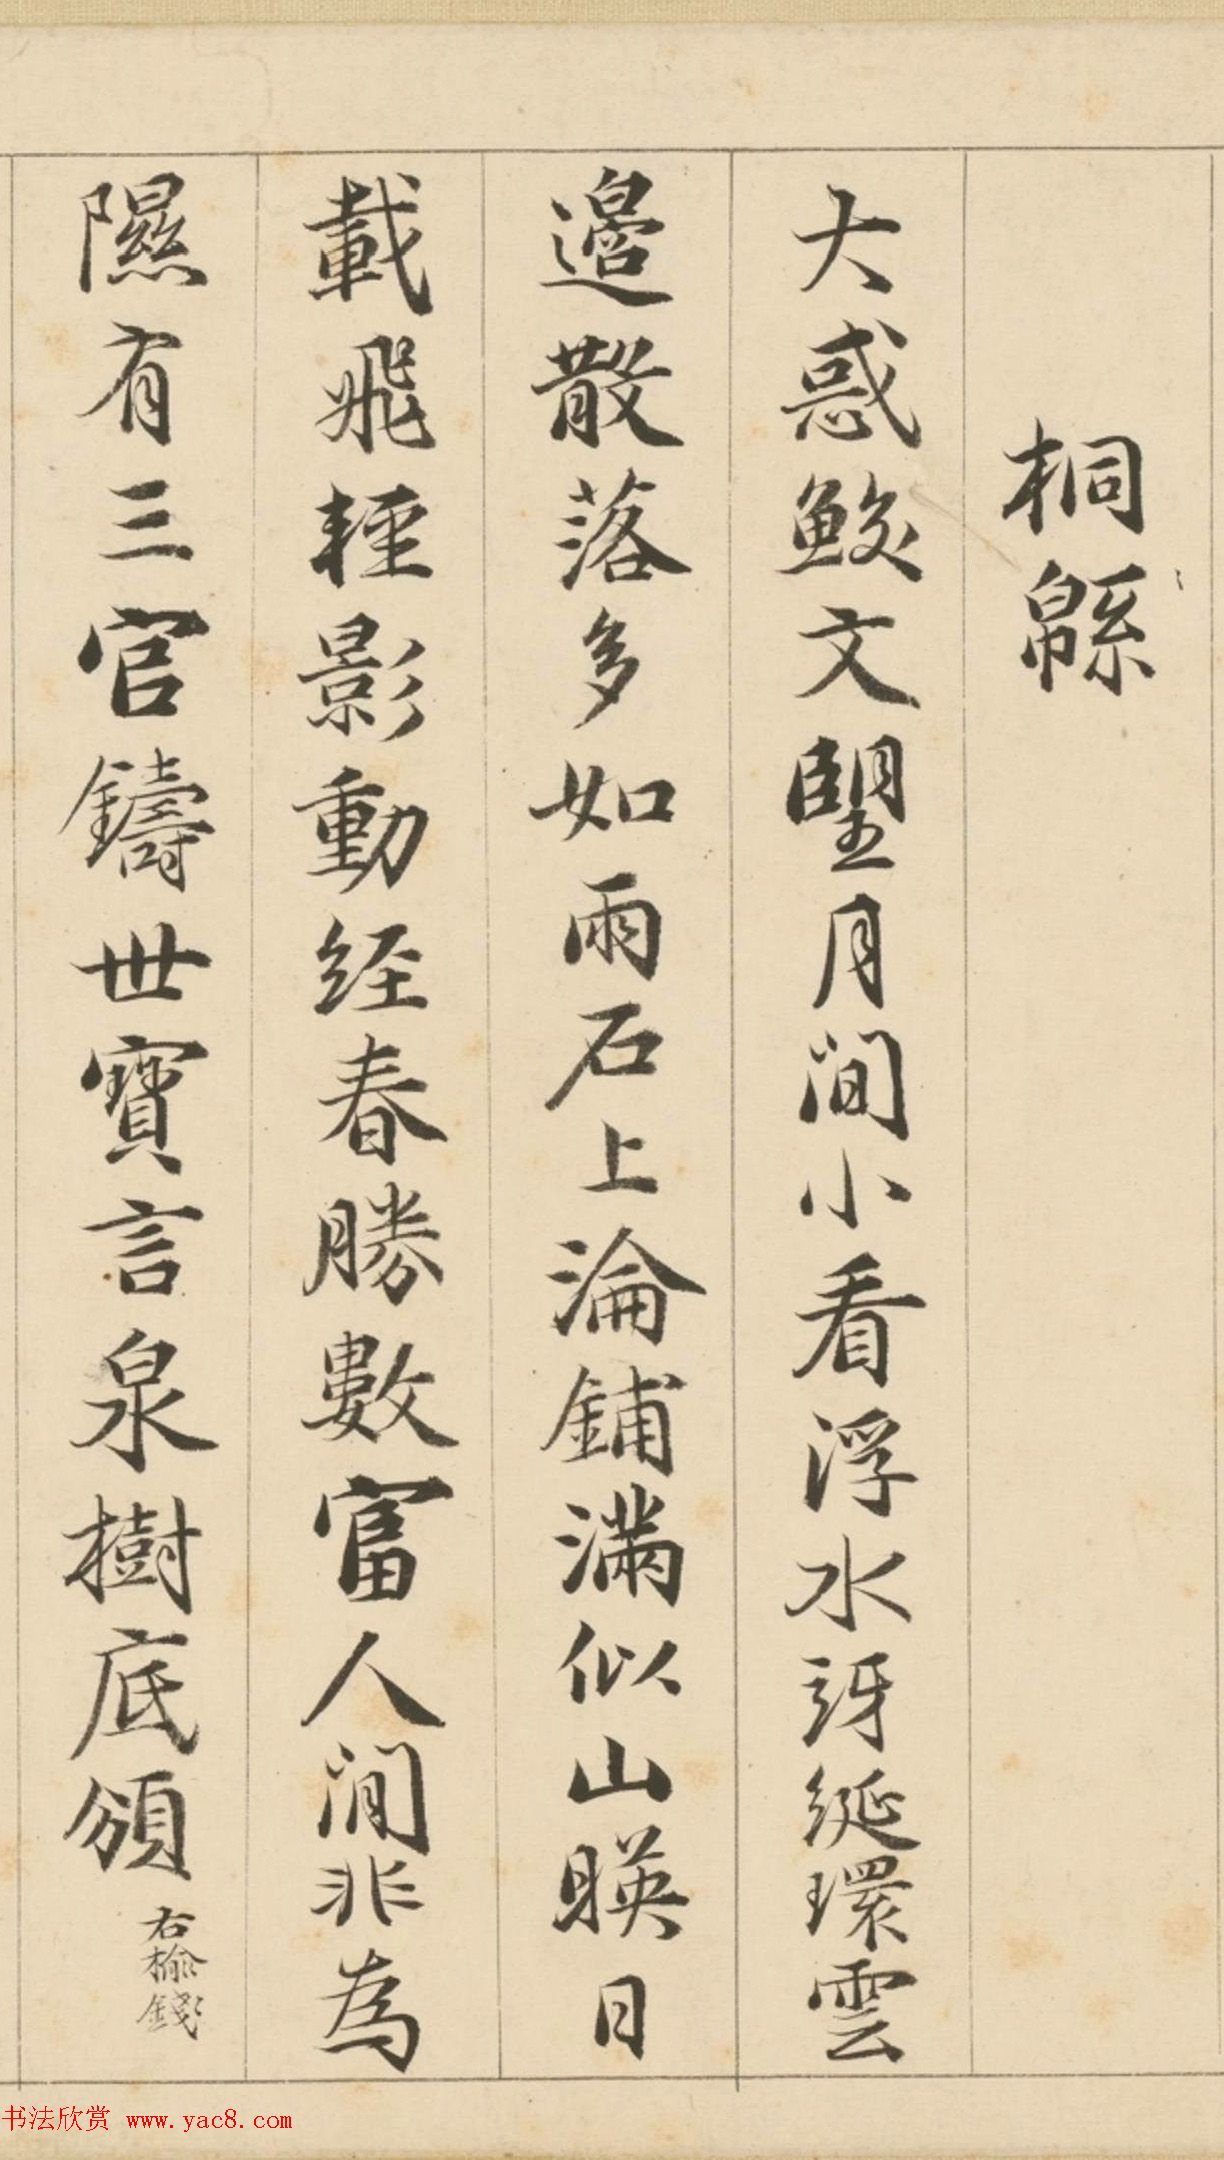 桐緜
大惑鮫文朢月間小看浮水訝綖環雲
邊散落多如雨石上淪鋪滿似山暎日
載飛輕影動經春勝數富人間非為
隰有三官鑄世寶言泉樹底頒
右榆錢
书法欣赏 www.yac8.com